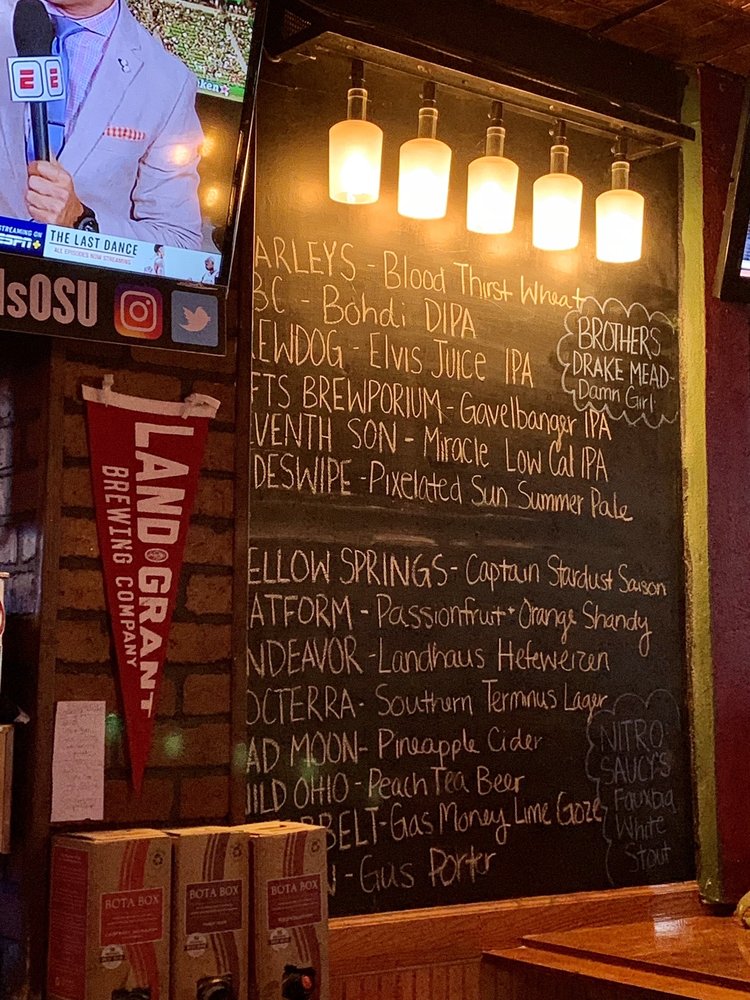 ESPN
STREAMING ON
ESPN+
THE LAST DANCE
ALL EPISODES NOW STREAMING
IsOSU
LAND GRANT
BREWING COMPANY
ARLEYS - Blood Thirst Wheat
BC - Bodhi DIPA
EWDOG - Elvis Juice IPA
FTS BREWPORIUM - Gavelbanger IPA
VENTH SON - Miracle Low Cal IPA
DESWIPE - Pixelated Sun Summer Pale
BROTHERS
DRAKE MEAD-
Damn Girl
ELLOW SPRINGS - Captain Stardust Saison
ATFORM - Passionfruit + Orange Shandy
NDEAVOR - Landhaus Hefeweizen
OCTERRA - Southern Termnus Lager
AD MOON - Pineapple Cider
ILD OHIO - Peach Tea Beer
BELT - Gas Money Lime Goze
N - Gus Porter
NITRO
SAUCY'S
Fauxbia
White
Stout
BOTA BOX
BOTA BOX
BOTA BOX